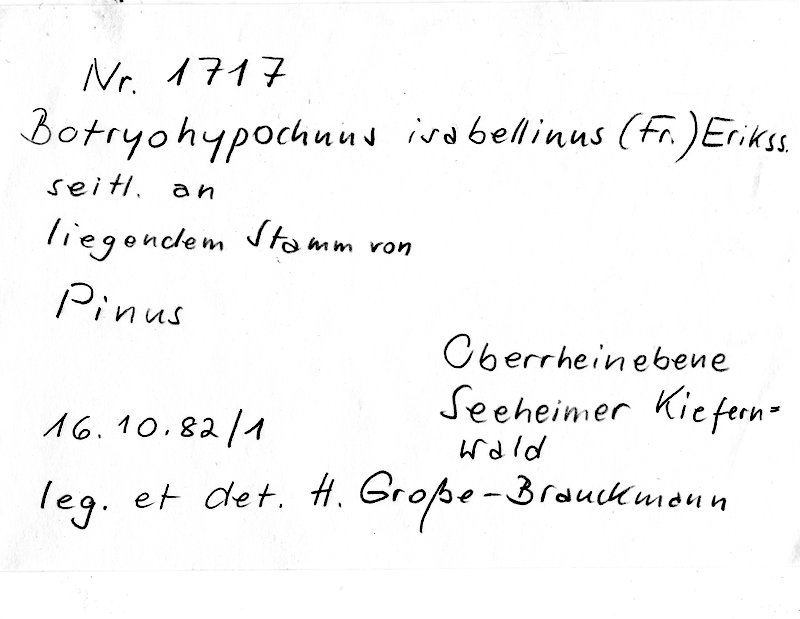 Nr. 1717
Botryohypochnus isabellinus (Fr.) Erikss.
seitl. an
liegendem Stamm von
Pinus
Oberrheinebene
Seeheimer Kiefern=
wald
16.10.82/1
leg. et det. H. Große-Brauckmann